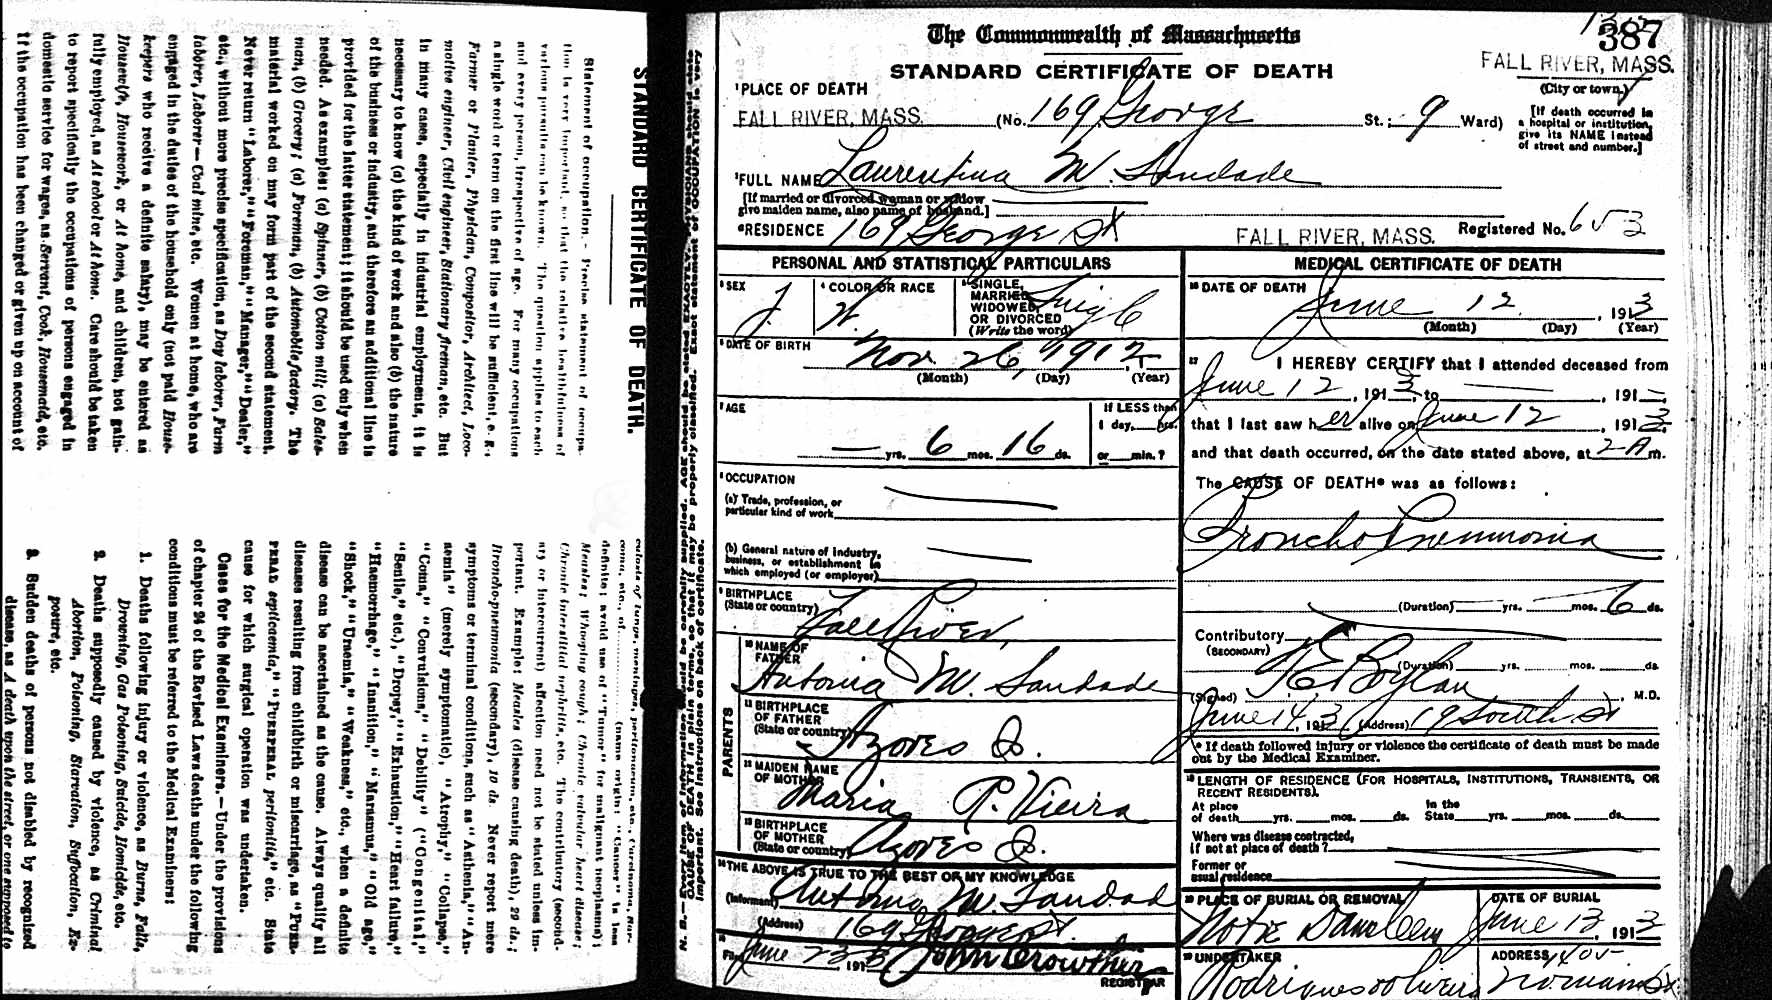 STANDARD CERTIFICATE OF DEATH.
Statement of occupation. — Precise statement of occupa-
tion is very important, so that the relative healthfulness of
various pursuits can be known. The question applies to each
and every person, irrespective of age. For many occupations
a single word or term on the first line will be sufficient, e. g.,
Farmer or Planter, Physician, Compositor, Architect, Loco-
motive engineer, Civil engineer, Stationary fireman, etc. But
in many cases, especially in industrial employments, it is
necessary to know (a) the kind of work and also (b) the nature
of the business or industry, and therefore an additional line is
provided for the latter statement; it should be used only when
needed. As examples: (a) Spinner, (b) Cotton mill; (a) Sales-
man, (b) Grocery; (a) Foreman, (b) Automobile factory. The
material worked on may form part of the second statement.
Never return "Laborer," "Foreman," "Manager," "Dealer,"
etc., without more precise specification, as Day laborer, Farm
laborer, Laborer — Coal mine, etc. Women at home, who are
engaged in the duties of the household only (not paid House-
keepers who receive a definite salary), may be entered as
Housewife, Housework, or At home, and children, not gain-
fully employed, as At school or At home. Care should be taken
to report specifically the occupations of persons engaged in
domestic service for wages, as Servant, Cook, Housemaid, etc.
If the occupation has been changed or given up on account of
culosis of lungs, meninges, peritonaeum, etc., Carcinoma, Sar-
coma, etc., of ........ (name origin; "Cancer" is less
definite; avoid use of "Tumor" for malignant neoplasms);
Measles; Whooping cough; Chronic valvular heart disease;
Chronic interstitial nephritis, etc. The contributory (second-
ary or intercurrent) affection need not be stated unless im-
portant. Example: Measles (disease causing death), 29 ds.;
Broncho-pneumonia (secondary), 10 ds. Never report mere
symptoms or terminal conditions, such as "Asthenia," "An-
aemia" (merely symptomatic), "Atrophy," "Collapse,"
"Coma," "Convulsions," "Debility" ("Congenital,"
"Senile," etc.), "Dropsy," "Exhaustion," "Heart failure,"
"Haemorrhage," "Inanition," "Marasmus," "Old age,"
"Shock," "Uraemia," "Weakness," etc., when a definite
disease can be ascertained as the cause. Always qualify all
diseases resulting from childbirth or miscarriage, as "PUER-
PERAL septicaemia," "PUERPERAL peritonitis," etc. State
cause for which surgical operation was undertaken.
Cases for the Medical Examiners. — Under the provisions
of chapter 24 of the Revised Laws deaths under the following
conditions must be referred to the Medical Examiners:
1. Deaths following injury or violence, as Burns, Falls,
Drowning, Gas Poisoning, Suicide, Homicide, etc.
2. Deaths supposedly caused by violence, as Criminal
Abortion, Poisoning, Starvation, Suffocation, Ex-
posure, etc.
3. Sudden deaths of persons not disabled by recognized
disease, as A death upon the street, or one supposed to
387
The Commonwealth of Massachusetts
STANDARD CERTIFICATE OF DEATH
FALL RIVER, MASS.
(City or town.)
1 PLACE OF DEATH
FALL RIVER, MASS. (No. 169 George St.; 9 Ward)
[If death occurred in
a hospital or institution,
give its NAME instead
of street and number.]
2 FULL NAME Laurentina M. Sandade
[If married or divorced woman or widow
give maiden name, also name of husband.]
3 RESIDENCE 169 George St FALL RIVER, MASS. Registered No. 653
PERSONAL AND STATISTICAL PARTICULARS
3 SEX F.
4 COLOR OR RACE W.
5 SINGLE, MARRIED, WIDOWED, OR DIVORCED (Write the word) Single
6 DATE OF BIRTH Nov. 26, 1912
(Month) (Day) (Year)
7 AGE
— yrs. 6 mos. 16 ds.
If LESS than
1 day, hrs.
or min.?
8 OCCUPATION
(a) Trade, profession, or
particular kind of work
(b) General nature of industry,
business, or establishment in
which employed (or employer)
9 BIRTHPLACE
(State or country) Fall River,
PARENTS
10 NAME OF
FATHER Antonia M. Sandade
11 BIRTHPLACE
OF FATHER
(State or country) Azores Is.
12 MAIDEN NAME
OF MOTHER Maria P. Vieira
13 BIRTHPLACE
OF MOTHER
(State or country) Azores Is.
14 THE ABOVE IS TRUE TO THE BEST OF MY KNOWLEDGE
(Informant) Antonia M. Sandad
(Address) 169 George St.
15
Filed June 23 1913 John Crowther
REGISTRAR
MEDICAL CERTIFICATE OF DEATH
16 DATE OF DEATH June 12, 1913
(Month) (Day) (Year)
17 I HEREBY CERTIFY that I attended deceased from
June 12, 1913, to —, 191—,
that I last saw her alive on June 12, 1913,
and that death occurred, on the date stated above, at 2 A m.
The CAUSE OF DEATH* was as follows:
Broncho Pneumonia
(Duration) yrs. mos. 6 ds.
Contributory
(SECONDARY)
(Duration) yrs. mos. ds.
(Signed) Boylan M.D.
June 14, 1913 (Address) 19 South St
* If death followed injury or violence the certificate of death must be made
out by the Medical Examiner.
18 LENGTH OF RESIDENCE (FOR HOSPITALS, INSTITUTIONS, TRANSIENTS, OR
RECENT RESIDENTS).
At place
of death yrs. mos. ds.
In the
State yrs. mos. ds.
Where was disease contracted,
if not at place of death?
Former or
usual residence
19 PLACE OF BURIAL OR REMOVAL
Notre Dame Cem
DATE OF BURIAL
June 13, 1913
20 UNDERTAKER
Rodrigues & Oliveira
ADDRESS 1405
No. main St